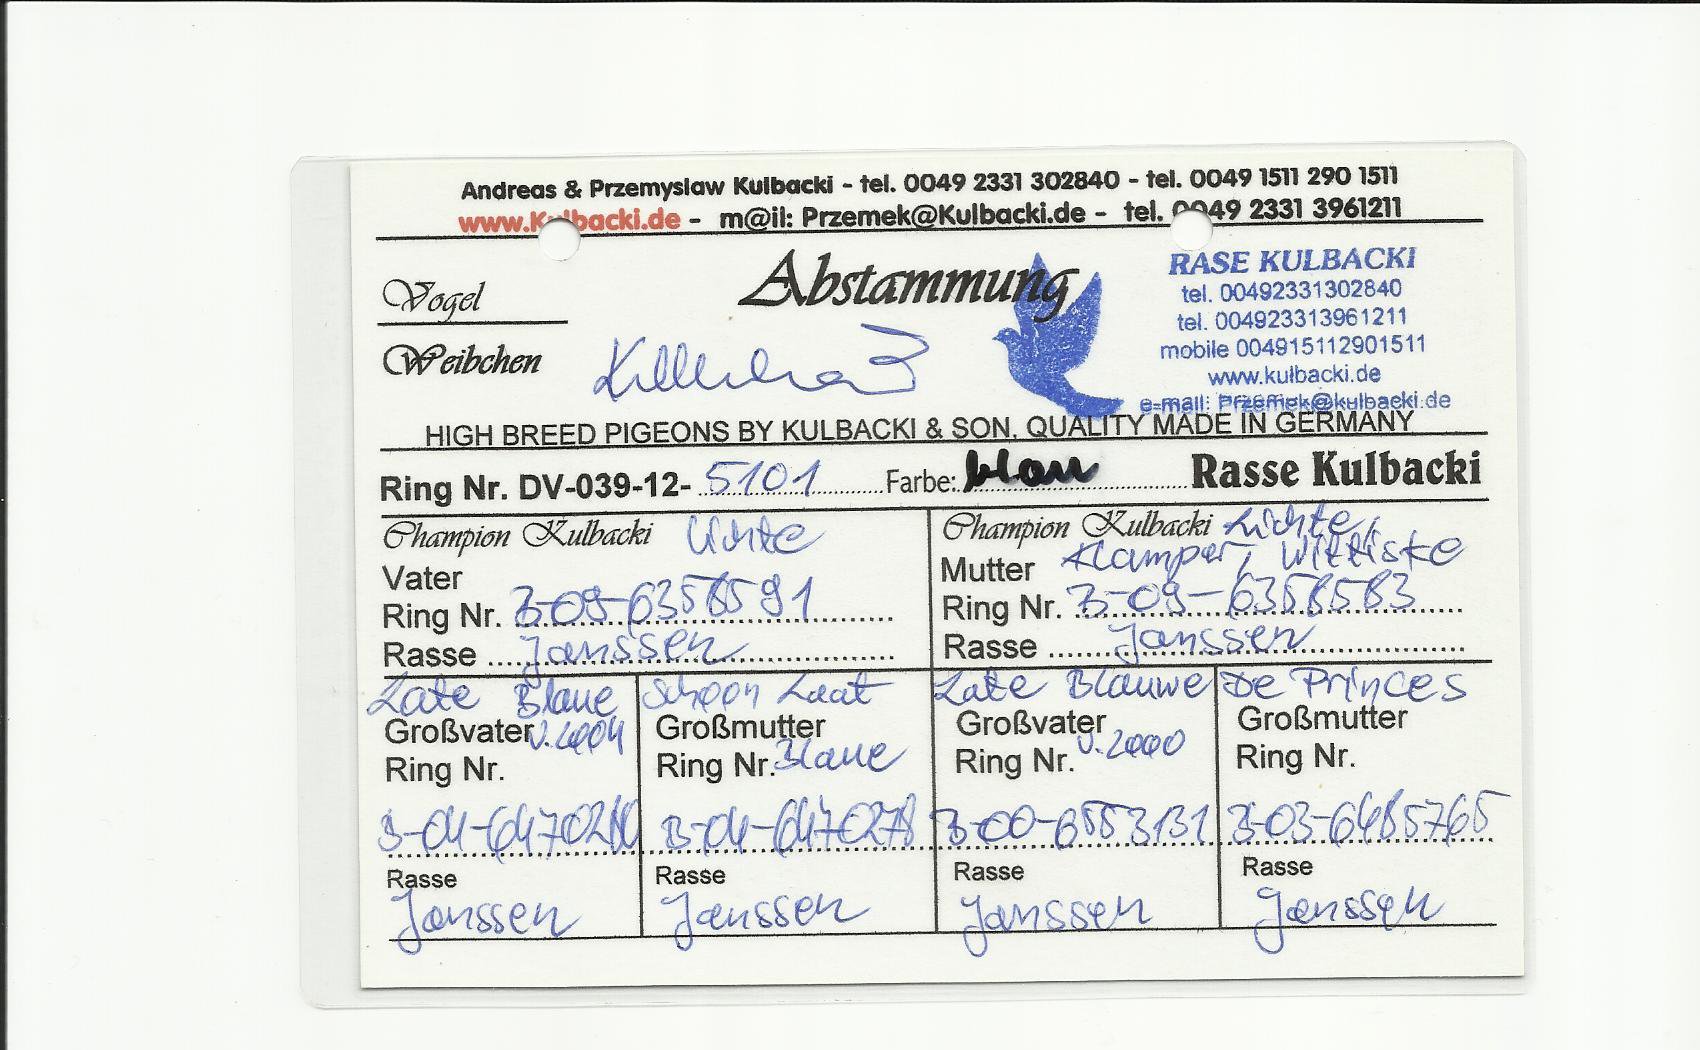 Andreas & Przemyslaw Kulbacki - tel. 0049 2331 302840 - tel. 0049 1511 290 1511
www.Kulbacki.de - m@il: Przemek@Kulbacki.de - tel. 0049 2331 3961211
Abstammung
RASE KULBACKI
tel. 00492331302840
tel. 004923313961211
mobile 004915112901511
www.kulbacki.de
e-mail: Przemek@kulbacki.de
Vogel
Weibchen
HIGH BREED PIGEONS BY KULBACKI & SON, QUALITY MADE IN GERMANY
Ring Nr. DV-039-12- 5101 Farbe: blau Rasse Kulbacki
Champion Kulbacki Lichte
Vater
Ring Nr. B-09-6358591
Rasse Janssen
Champion Kulbacki Lichte,
Mutter Klamper, Wittiske
Ring Nr. B-09-6358583
Rasse Janssen
Late Blaue
Großvater v. 2004
Ring Nr.
B-04-6470280
Rasse
Janssen
Schoon Laat
Großmutter
Ring Nr. Blaue
B-04-6470278
Rasse
Janssen
Late Blauwe
Großvater
Ring Nr. v. 2000
B-00-6553131
Rasse
Janssen
De Princes
Großmutter
Ring Nr.
B-03-6485765
Rasse
Janssen